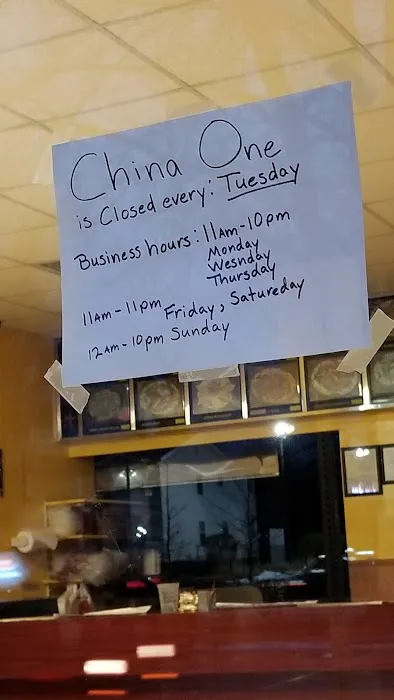 China One
is Closed every: Tuesday
Business hours: 11AM-10pm
Monday
Wesnday
Thursday
11AM-11pm Friday, Satureday
12AM-10pm Sunday